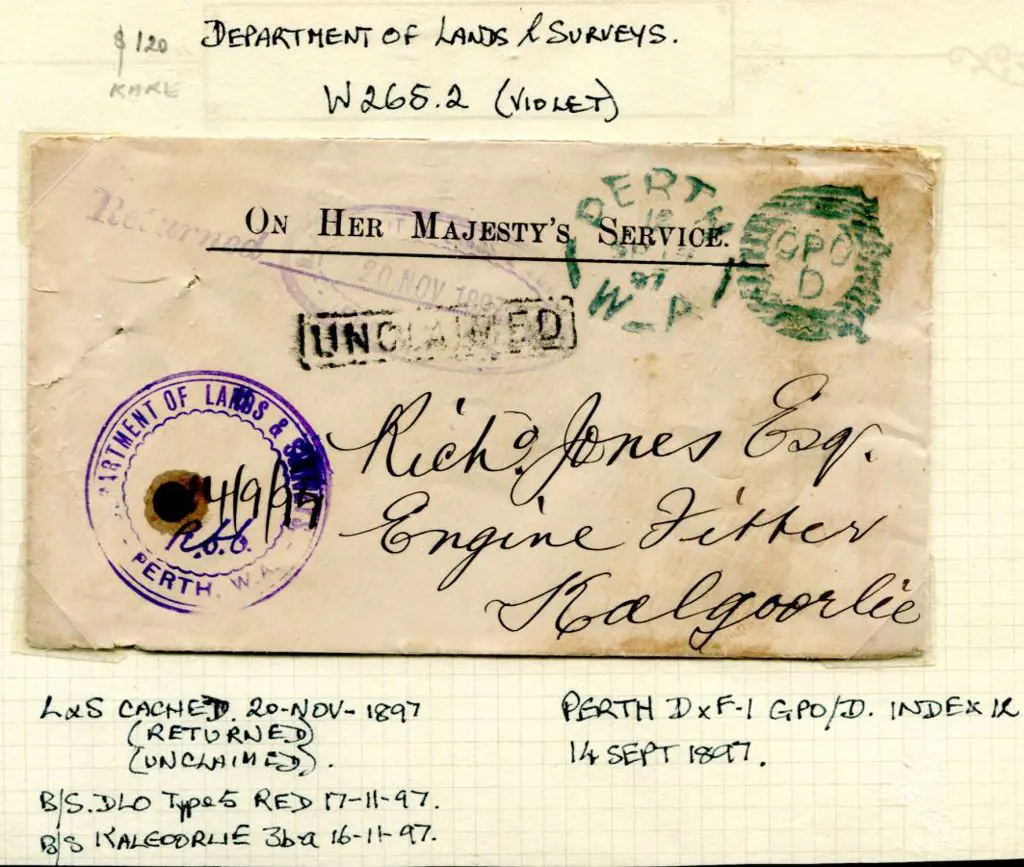 $120 DEPARTMENT OF LANDS & SURVEYS.
RARE
W265.2 (VIOLET)
Returned
ON HER MAJESTY'S SERVICE.
20 NOV 1897
PERTH
12
SP 14
97
W-A
GPO
D
UNCLAIMED
DEPARTMENT OF LANDS & SURVEYS
14/9/97
PERTH. W.A.
Richd. Jones Esq.
Engine Fitter
Kalgoorlie
L&S CACHED. 20-NOV-1897
(RETURNED)
(UNCLAIMED).
B/S. DLO Type 5 RED 17-11-97.
B/S KALGOORLIE 3b-a 16-11-97.
PERTH DxF-1 GPO/D. INDEX 12
14 SEPT 1897.